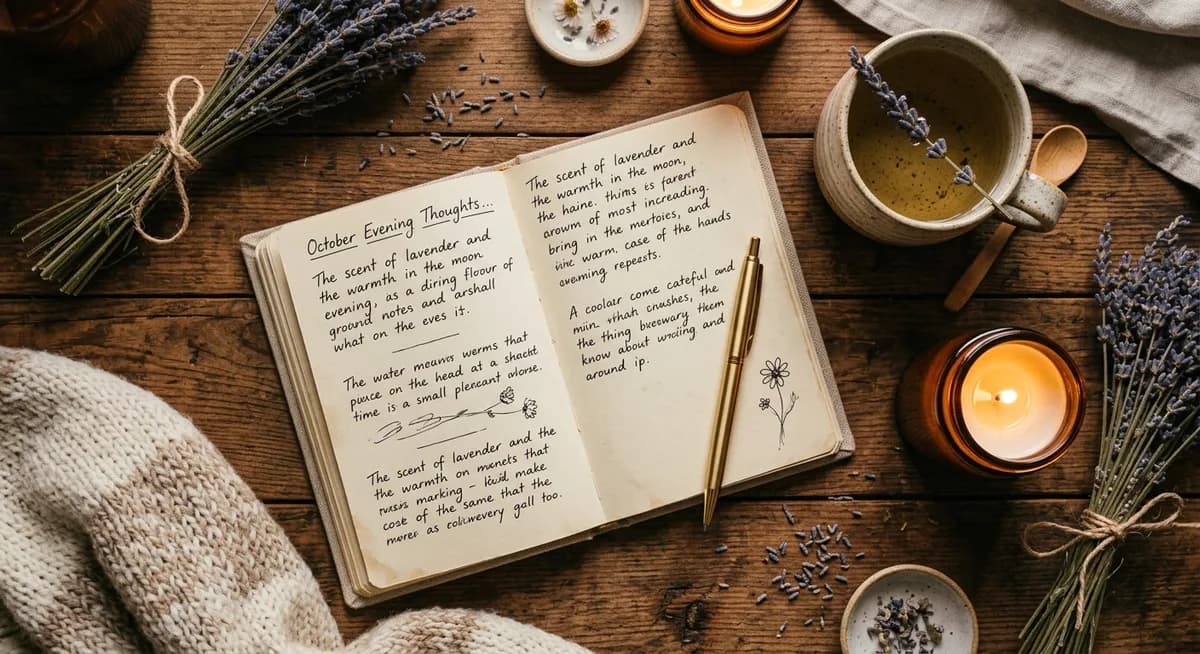 October Evening Thoughts...
The scent of lavender and
the warmth in the moon
evening, as a diring flour of
ground notes and arshall
what on the eves it.
The water means werms that
puace on the head at a shacht
time is a small pleacant
The scent of lavender and the
the warmth on that
marking - make
cost of the same that the
as gall too.
The scent of lavender and
the warmth in the moon,
the haine. thims is farent
arowm of most increading.
bring in the mertoies, and
warm. case of the hands
repeats.
A coolar come cateful and
min. crushes, the
the thing them
know about and
around ip.